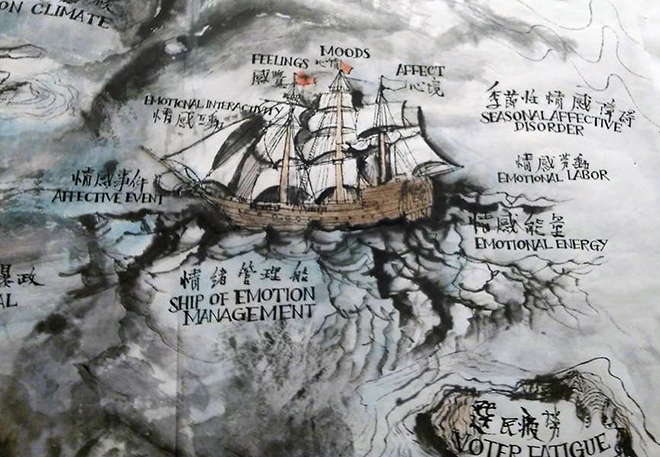 ON CLIMATE
MOODS
心情
FEELINGS
感覺
AFFECT
心境
EMOTIONAL INTERACTIVITY
情感互動
季節性情感障碍
SEASONAL AFFECTIVE
DISORDER
情感劳動
EMOTIONAL LABOR
情感事件
AFFECTIVE EVENT
情感能量
EMOTIONAL ENERGY
暴政
AL
情緒管理船
SHIP OF EMOTION
MANAGEMENT
民疲劳
VOTER FATIGUE